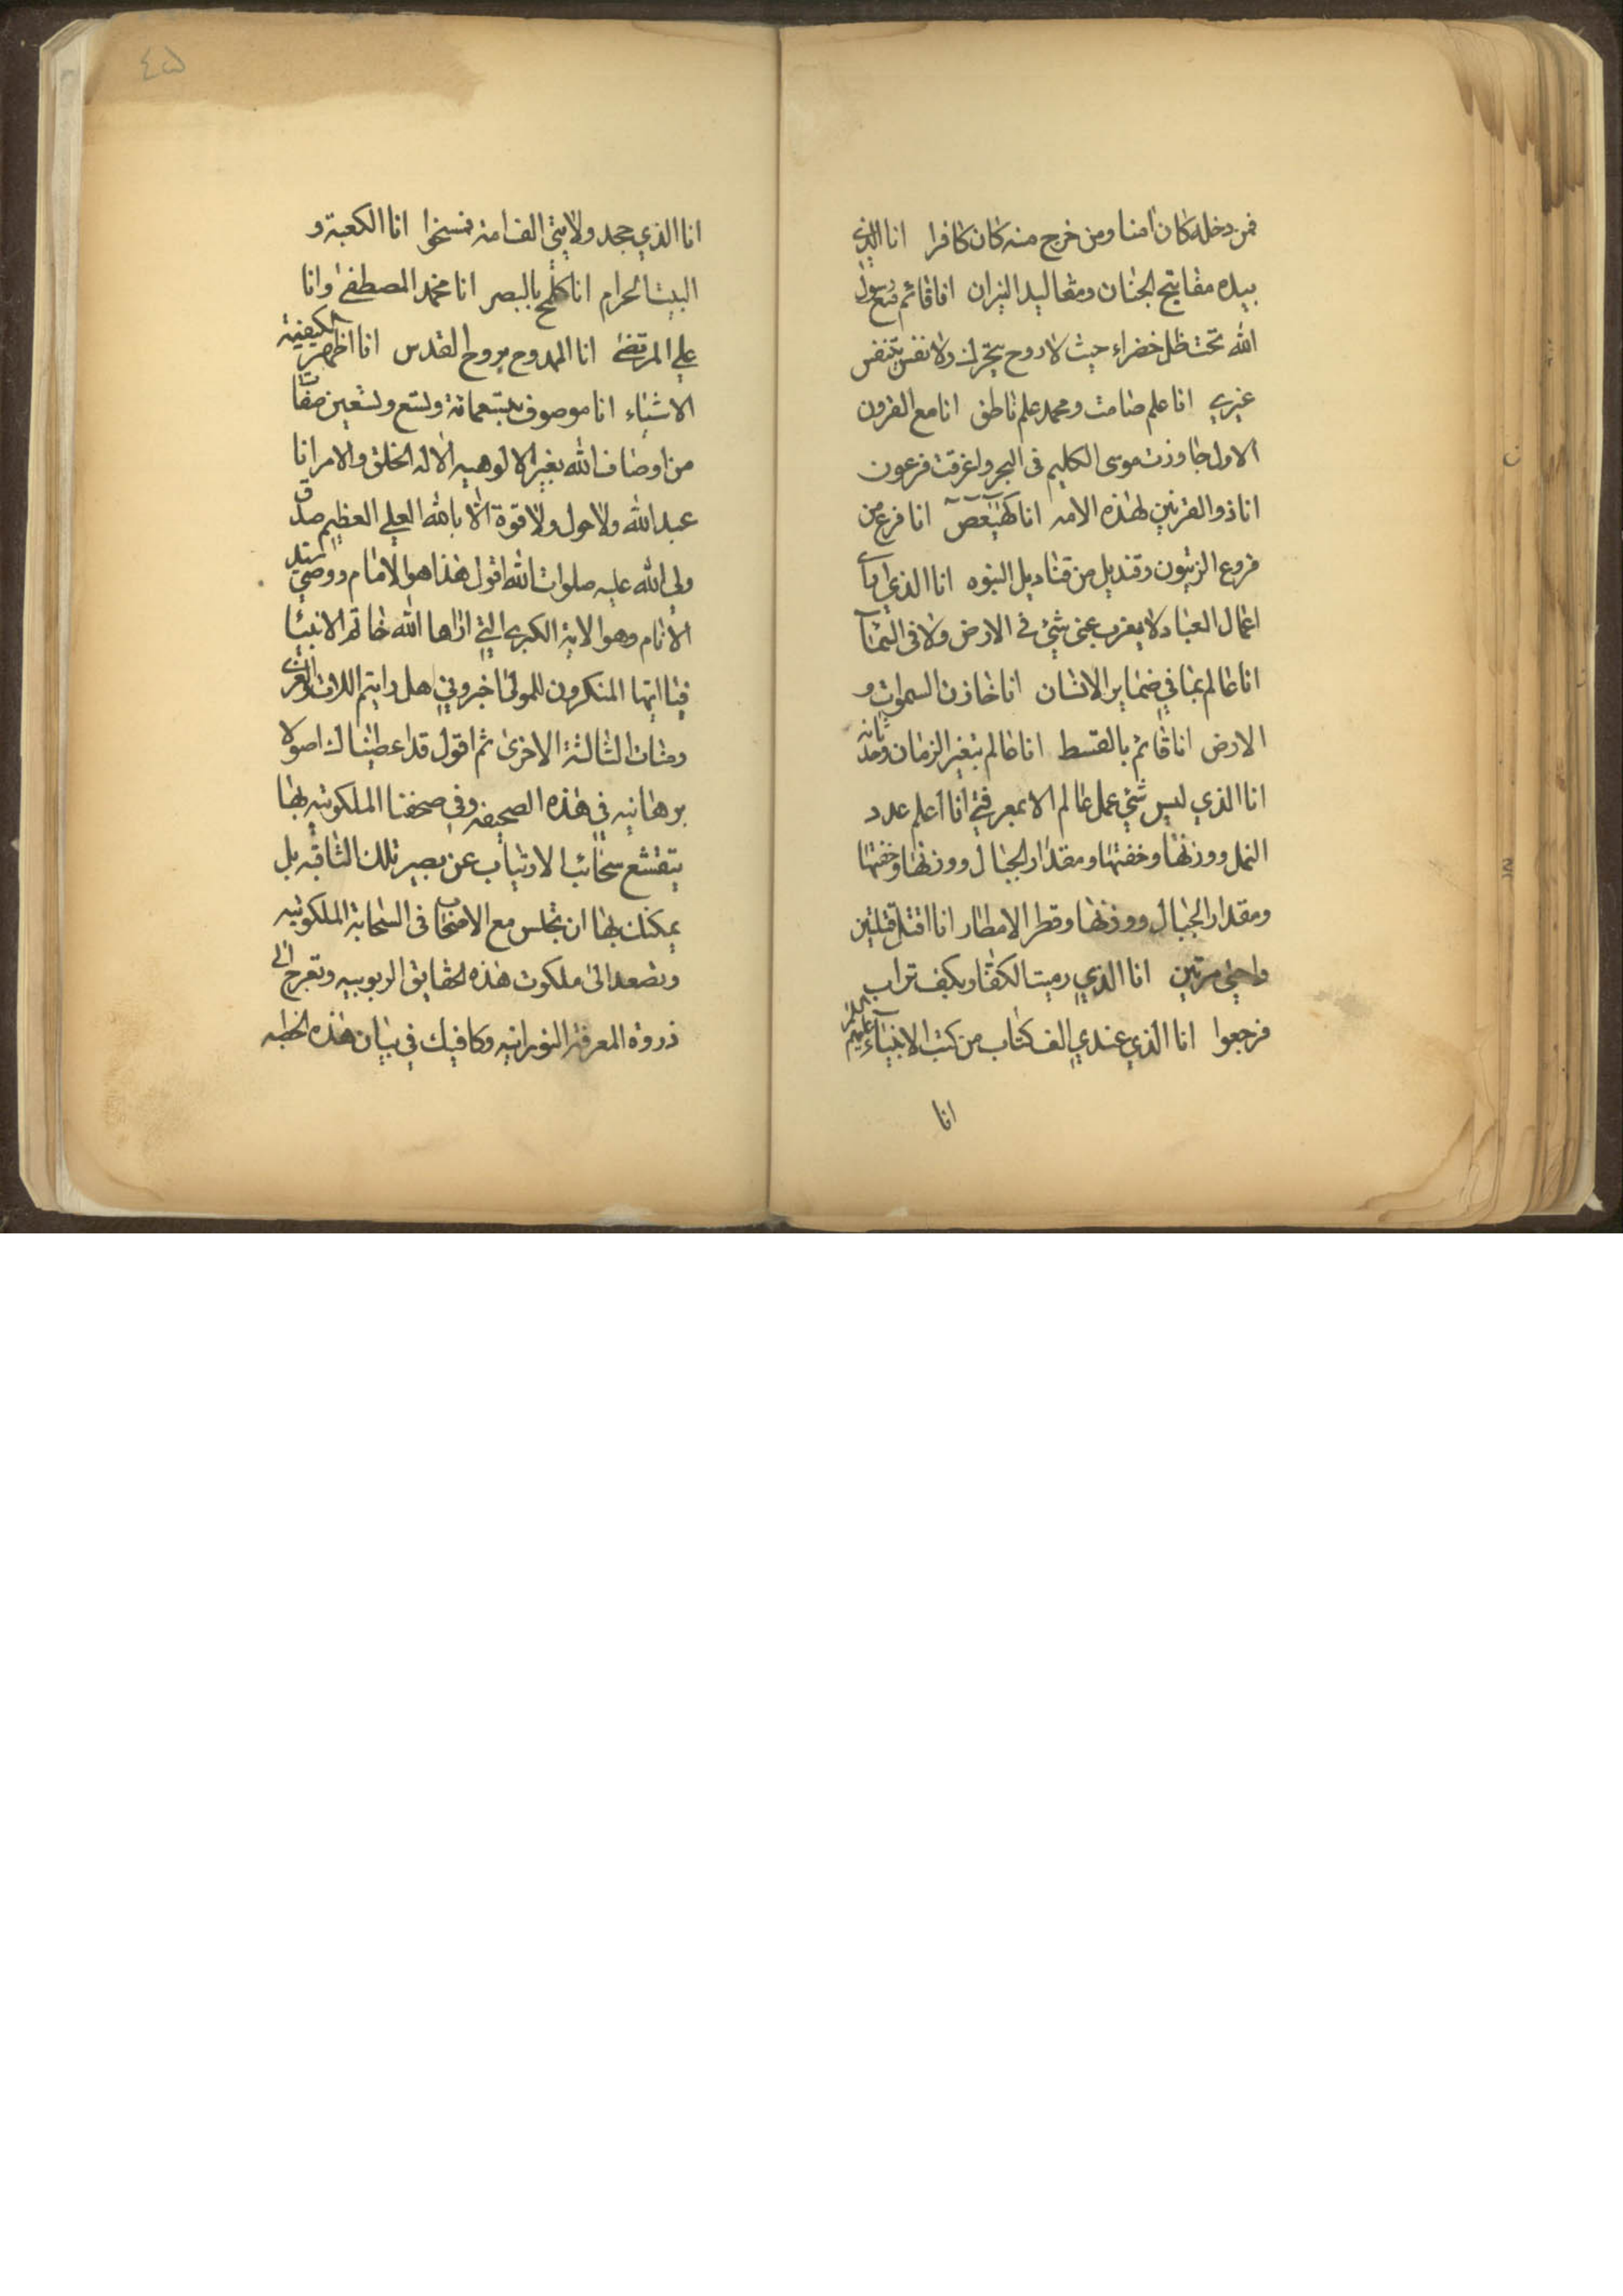 فمن دخله كان امنا ومن خرج منه كان كافرا انا الذي
بيده مفاتيح الجنان ومقاليد النيران انا قائم مع رسول
الله تحت ظل خضراء حيث لا روح يتحرك ولا نفس يتنفس
غيري انا علم صامت ومحمد علم ناطق انا مع القرون
الاول جاوزت موسى الكليم فى البحر واغرقت فرعون
انا ذو القرنين لهذه الامه انا كهيعص انا فرع من
فروع الزيتون وقنديل من قناديل النبوه انا الذي ارى
اعمال العباد لا يعزب عنى شئ في الارض ولا فى السماء
انا عالم بما في ضماير الانسان انا خازن السموات و
الارض انا قائم بالقسط انا عالم بتغير الزمان وحدثانه
انا الذي ليس شئ عمل عالم الا بمعرفتي انا اعلم عدد
النمل ووزنها وخفتها ومقدار الجبال ووزنها وخفتها
ومقدار الجبال ووزنها وقطر الامطار انا اقتل قتلتين
واحيي مرتين انا الذي رميت الكفار بكف تراب
فرجعوا انا الذي عندي الف كتاب من كتب الانبياء عليهم
انا
٤٥
انا الذي جحد ولايتي الف امة فمسخوا انا الكعبة و
البيت الحرام انا كلمح بالبصر انا محمد المصطفى وانا
علي المرتضى انا الممدوح بروح القدس انا اظهر الكيفية
الاشياء انا موصوف بتسعمائة وتسع وتسعين صفات
من اوصاف الله بغير الالوهيه الا له الخلق والامر انا
عبد الله ولا حول ولا قوة الا بالله العلي العظيم صدق
ولي الله عليه صلوات الله اقول هذا هو الامام ووصي سيد
الانام وهو الاية الكبرى التي اراها الله خاتم الانبيا
فيا ايها المنكرون للمولى اخبروني هل رايتم اللات والعزى
ومنات الثالثة الاخرى ثم اقول قد اعطيناك اصولا
برهانيه في هذه الصحيفه وفي صحفنا الملكوتيه بها
يتقشع سحائب الارتياب عن بصيرتك الثاقبه بل
يمكنك بها ان تجلس مع الاصحاب فى السحابة الملكوتيه
وتصعد الى ملكوت هذه الحقايق الربوبيه وتعرج الى
ذروة المعرفة النورانيه وكافيك في بيان هذه الخطبه